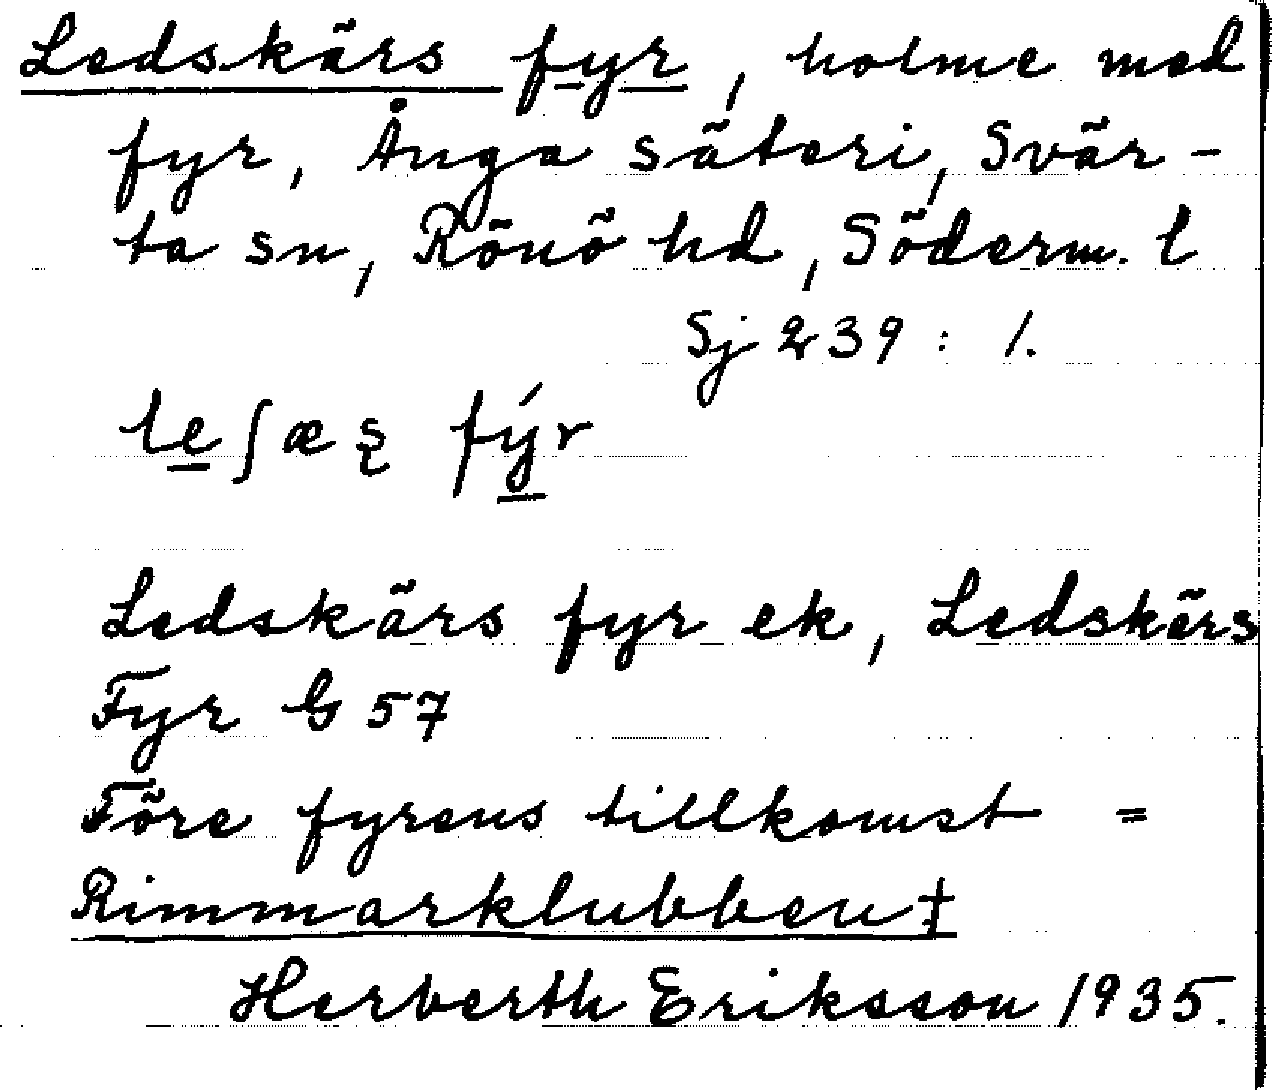 Ledskärs fyr, holme med
fyr, Ånga säteri, Svär-
ta sn, Rönö hd, Söderm. l
Sj 239 : 1.
le̲ʃæʂ fý̲r
Ledskärs fyr ek, Ledskärs
Fyr G 57
Före fyrens tillkomst =
Rimmarklubben †
Herberth Eriksson 1935.